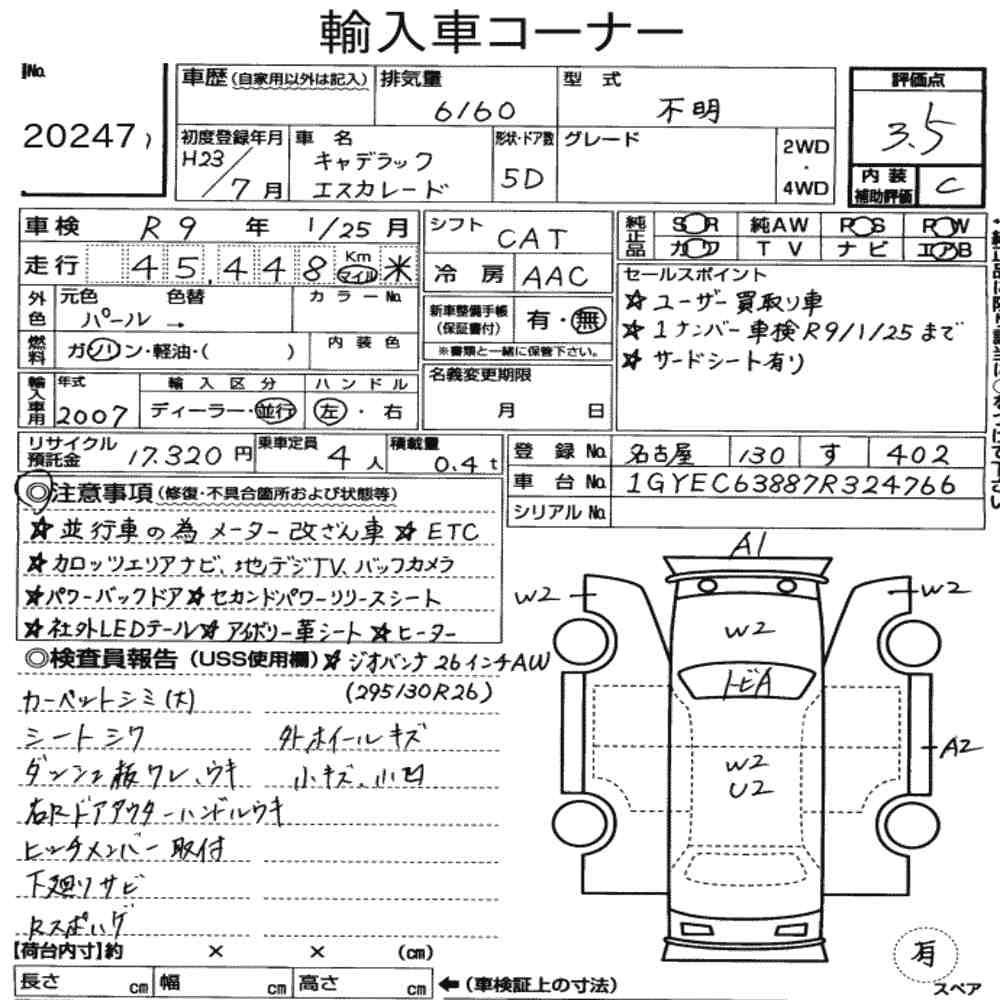 輸入車コーナー
No.
20247
車歴(自家用以外は記入) 排気量 6160 型式 不明
評価点 3.5
初度登録年月 H23/7月 車名 キャデラック エスカレード 形状・ドア数 5D グレード 2WD・4WD
内装補助評価 C
車検 R9年 1/25月 シフト CAT
純正品 SR 純AW PS PW
カワ TV ナビ エアB
走行 45,448 Km マイル 米 冷房 AAC
セールスポイント
☆ユーザー買取り車
☆1ナンバー車検R9/1/25まで
☆サードシート有り
外色 元色 パール→ 色替 カラーNo.
新車整備手帳(保証書付) 有・無
※書類と一緒に保管下さい。
燃料 ガソリン・軽油・( ) 内装色
名義変更期限 月 日
輸入車用 年式 2007 輸入区分 ディーラー・並行 ハンドル 左・右
リサイクル預託金 17.320円 乗車定員 4人 積載量 0.4t
登録No. 名古屋 130 す 402
車台No. 1GYEC63887R324766
シリアルNo.
◎注意事項(修復・不具合箇所および状態等)
☆並行車の為メーター改ざん車 ☆ETC
☆カロッツェリアナビ、地デジTV、バックカメラ
☆パワーバックドア☆セカンドパワーリリースシート
☆社外LEDテール☆アイボリー革シート ☆ヒーター
◎検査員報告(USS使用欄)☆ジオバンナ26インチAW
(295/30R26)
カーペットシミ(大)
シートシワ 外ホイールキズ
ダッシュ板ワレ、ウキ 小キズ、小凹
右Rドアアウターハンドルウキ
ヒッチメンバー取付
下廻りサビ
Rスポハゲ
【荷台内寸】約 × × (cm)
長さ cm 幅 cm 高さ cm ←(車検証上の寸法)
A1
W2 W2
W2
トビA
A2
W2
U2
有
スペア